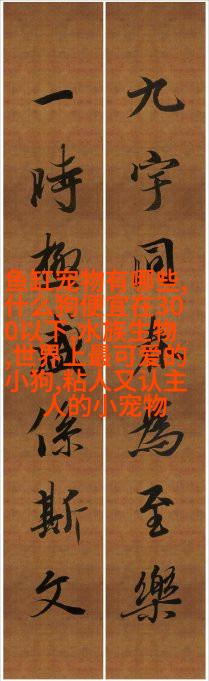 九宇同為至樂
一時極盛係斯文
鱼缸宠物有哪些,
什么狗便宜在30
0以下,水族生物
,世界上最可爱的
小狗,粘人又认主
人的小宠物